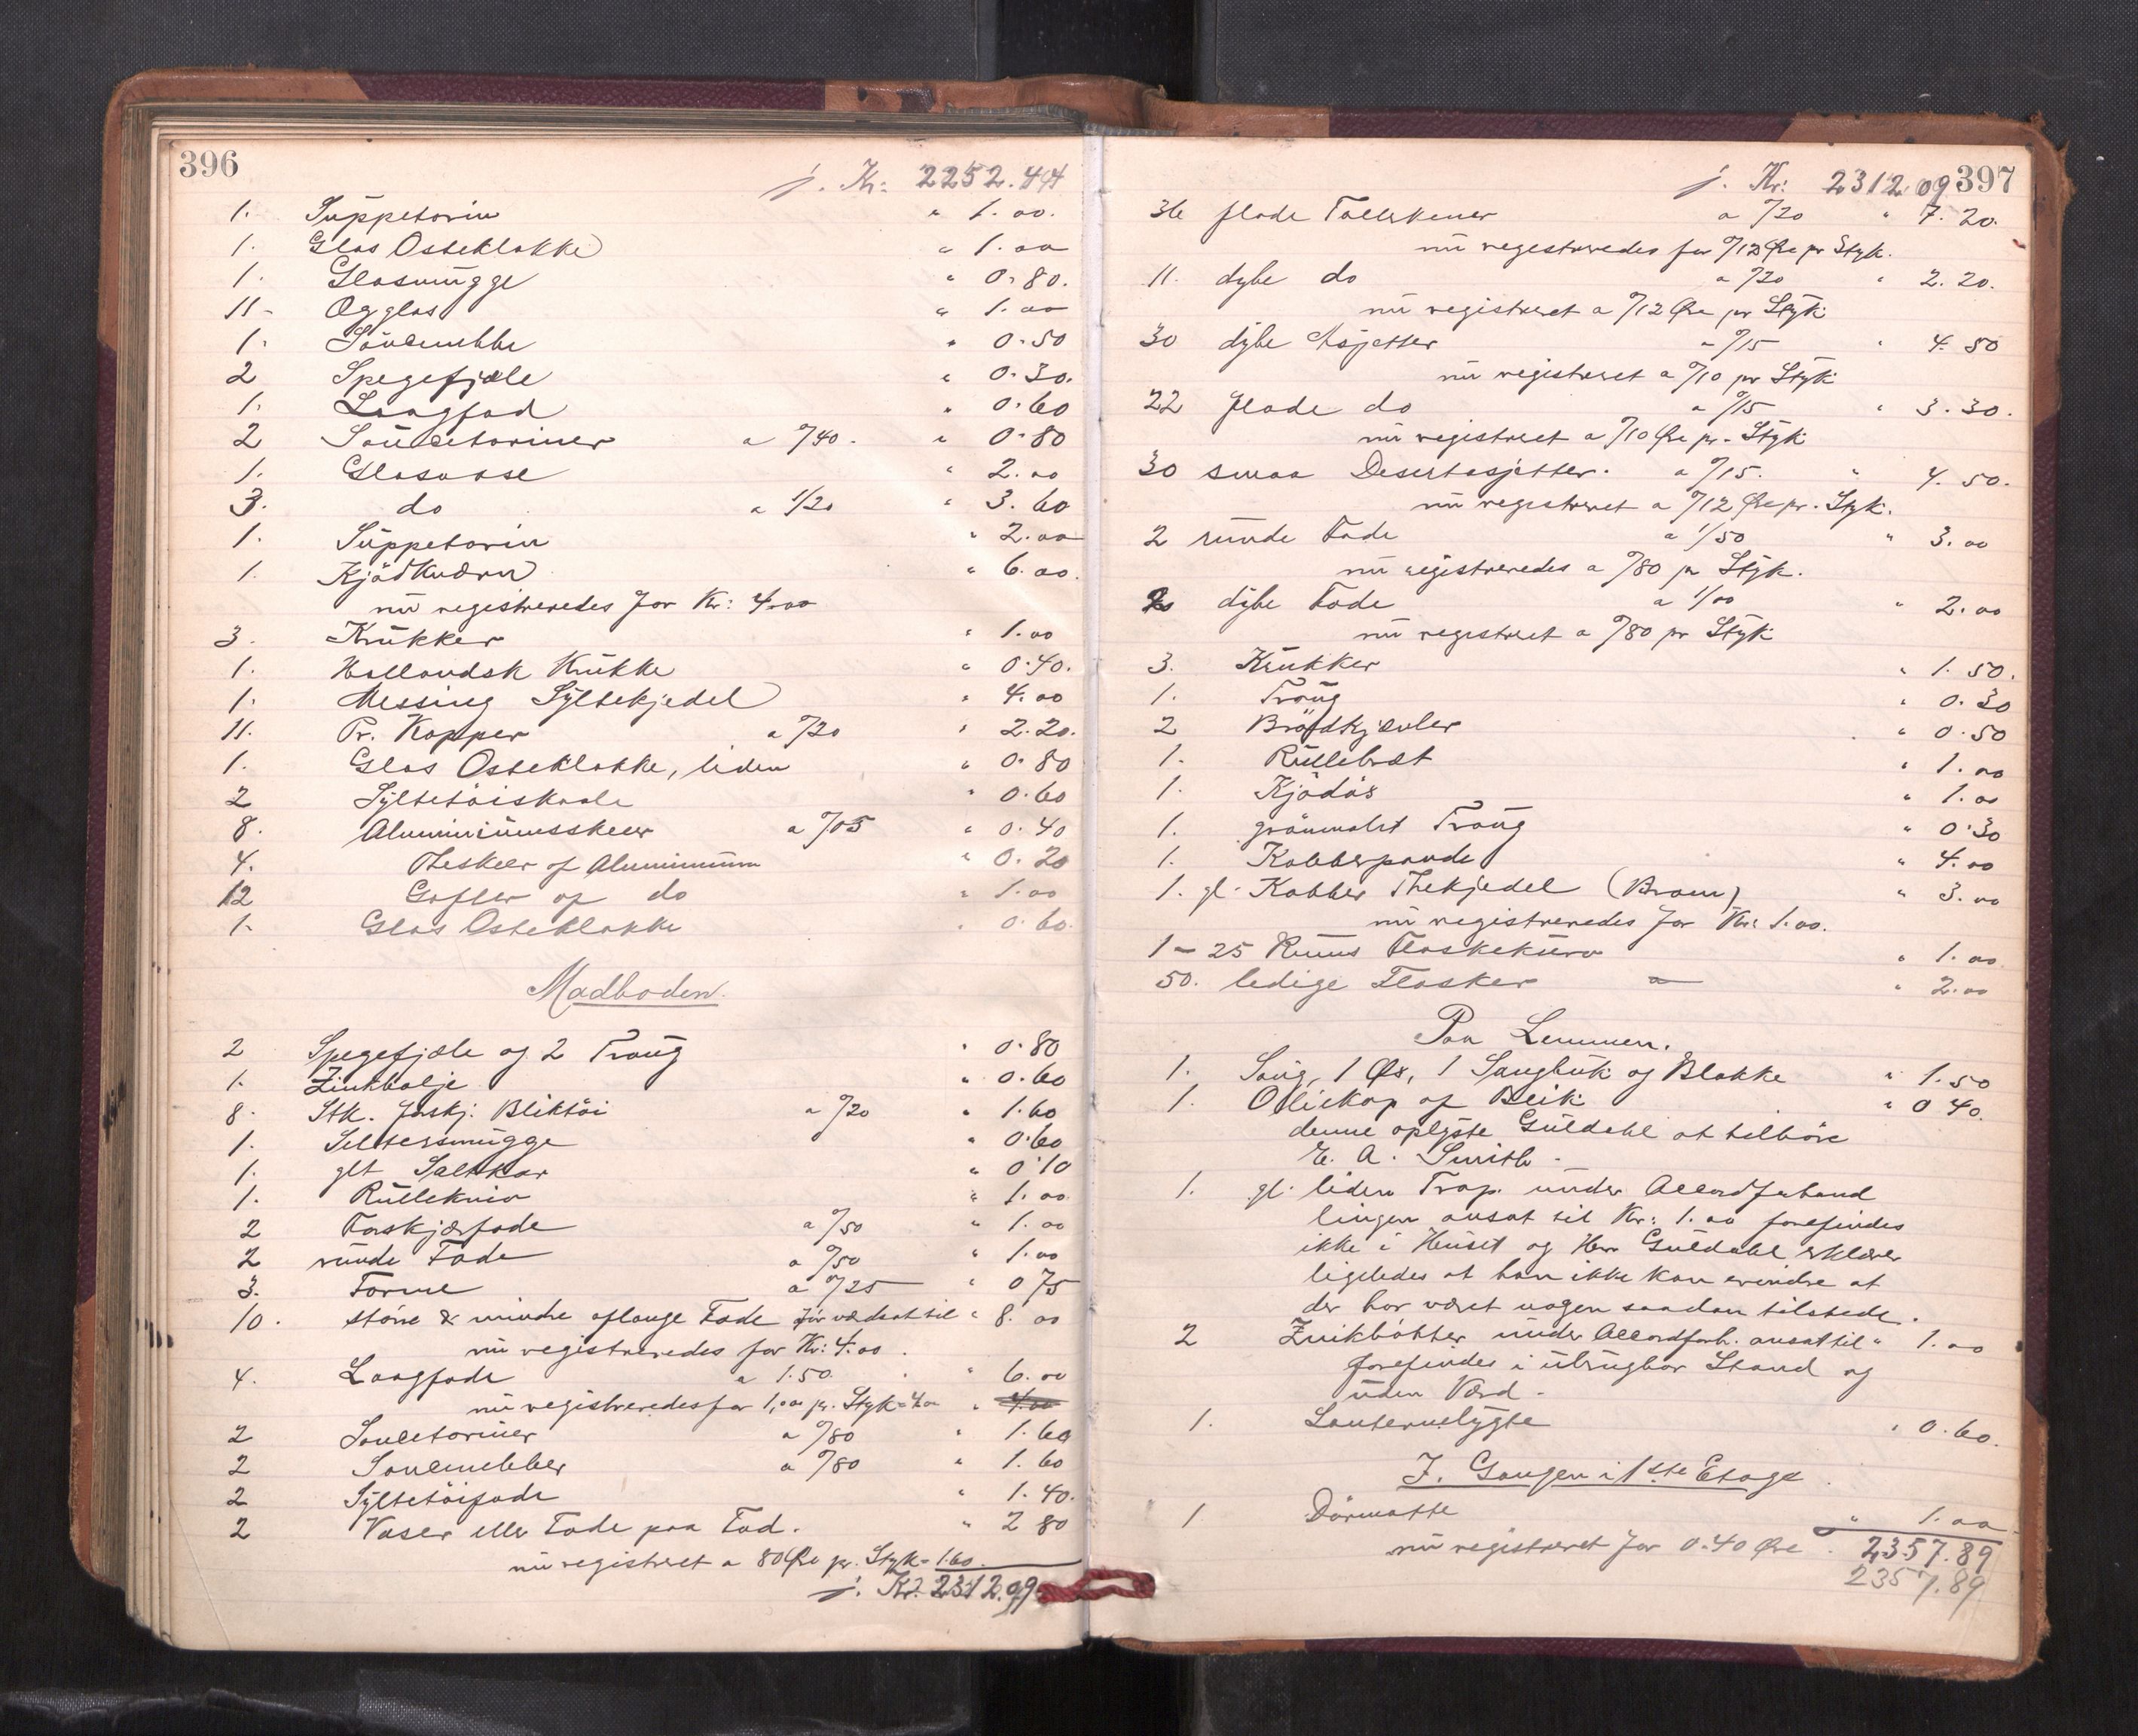 396
f. Kr: 2252.44
1. Suppeterin " 1.00.
1. Glas Osteklokke " 1.00
1. Glasmugge " 0.80.
11 - Egglas " 1.00
1. Sausenebbe " 0.50
2 Spegefjæle " 0.30.
1. Langfad " 0.60
2 Sauceteriner a 0/40. " 0.80
1. Glasvase " 2.00
3. do a 1/20 " 3.60
1. Suppeterin " 2.00
1. Kjødkværn " 6.00.
nu registreredes for Kr: 4.00
3. Krukker " 1.00
1. Hollandsk Krukke " 0.40.
1. Messing Syltekjedel " 4.00
11. Pr. Kopper a 0/20 " 2.20.
1. Glas Osteklokke, liden " 0.80
2 Syltetöiskaale " 0.60
8. Aluminiumsskeer a 0/05 " 0.40
4. Theskeer af Aluminium " 0.20
12 Gafler af do " 1.00
1. Glas Osteklokke " 0.60.
Madboden.
2 Spegefjæle og 2 Traug " 0.80
1. Zinkbalje " 0.60
8. Stk. forskj. Bliktöi a 0/20 " 1.60
1. Seltersmugge " 0.60
1. glt Saltkar " 0.10
1. Rullekniv " 1.00
2 Forskjærfade a 0/50 " 1.00
2 runde Fade a 0/50 " 1.00
3. Forme a 0/25 " 0 75
10. större & mindre aflange Fade för værdsat til " 8.00
nu registreredes for Kr: 4.00.
4. Langfade a 1.50. " 6.00
nu registreredes for 1,00 pr. Styk = 4.00 " 4.00
2 Sauceteriner a 0/80 " 1.60
2 Saucenebber a 0/80 " 1.60
2 Syltetöifade " 1.40.
2 Vaser eller Fade paa Fod. " 2 80
nu registreret a 80 Øre pr. Styk = 1.60.
f. Kr. 2312.09
397
f. Kr: 2312.09
36 flade Tallerkener a 0/20 " 7.20.
nu registreredes for 0/12 Øre pr Styk.
11. dybe do a 0/20 " 2.20.
nu registreret a 0/12 Øre pr Styk
30 dybe Asjetter a 0/15 " 4.50
nu registreret a 0/10 pr Styk
22 flade do a 0/15 " 3.30.
nu registreret a 0/10 Øre pr. Styk
30 smaa Desertasjetter. a 0/15. " 4.50.
nu registreret a 0/12 Øre pr. Styk.
2 runde Fade a 1/50 " 3.00
nu registreredes a 0/80 pr Styk.
2 dybe Fade a 1/00 " 2.00
nu registreret a 0/80 pr Styk
3. Krukker " 1.50.
1. Traug " 0.30
2 Brödkjævler " 0.50
1. Rullebræt " 1.00
1. Kjödøs " 1.00
1. grönmalet Traug " 0.30
1. Kobberpande " 4.00
1. gl. Kobber Thekjedel (Bram) " 3.00
nu registreredes for Kr: 1.00.
1 - 25 Rums Flaskekurv " 1.00
50. ledige Flasker " 2.00
Paa Lemmen.
1. Saug, 1 Øx, 1 Saugbuk og Blokke " 1.50
1. Oliekop af Blik " 0 40.
denne oplyste Guldahl at tilhöre
E. A. Smith.
1. gl. liden Trap. under Accordforhand
lingen ansat til Kr: 1.00 forefindes
ikke i Huset og Herr Guldahl erklærer
ligeledes at han ikke kan erindre at
der har været nogen saadan tilstede.
2 Zinkbötter under Accordforh. ansat til " 1.00
forefindes i ubrugbar Stand og
uden Værd.
1. Lanternelygte " 0.60.
I. Gangen i 1ste Etage.
1 Dörmatte " 1.00
nu registreret for 0.40 Øre. 2357.89
2357.89